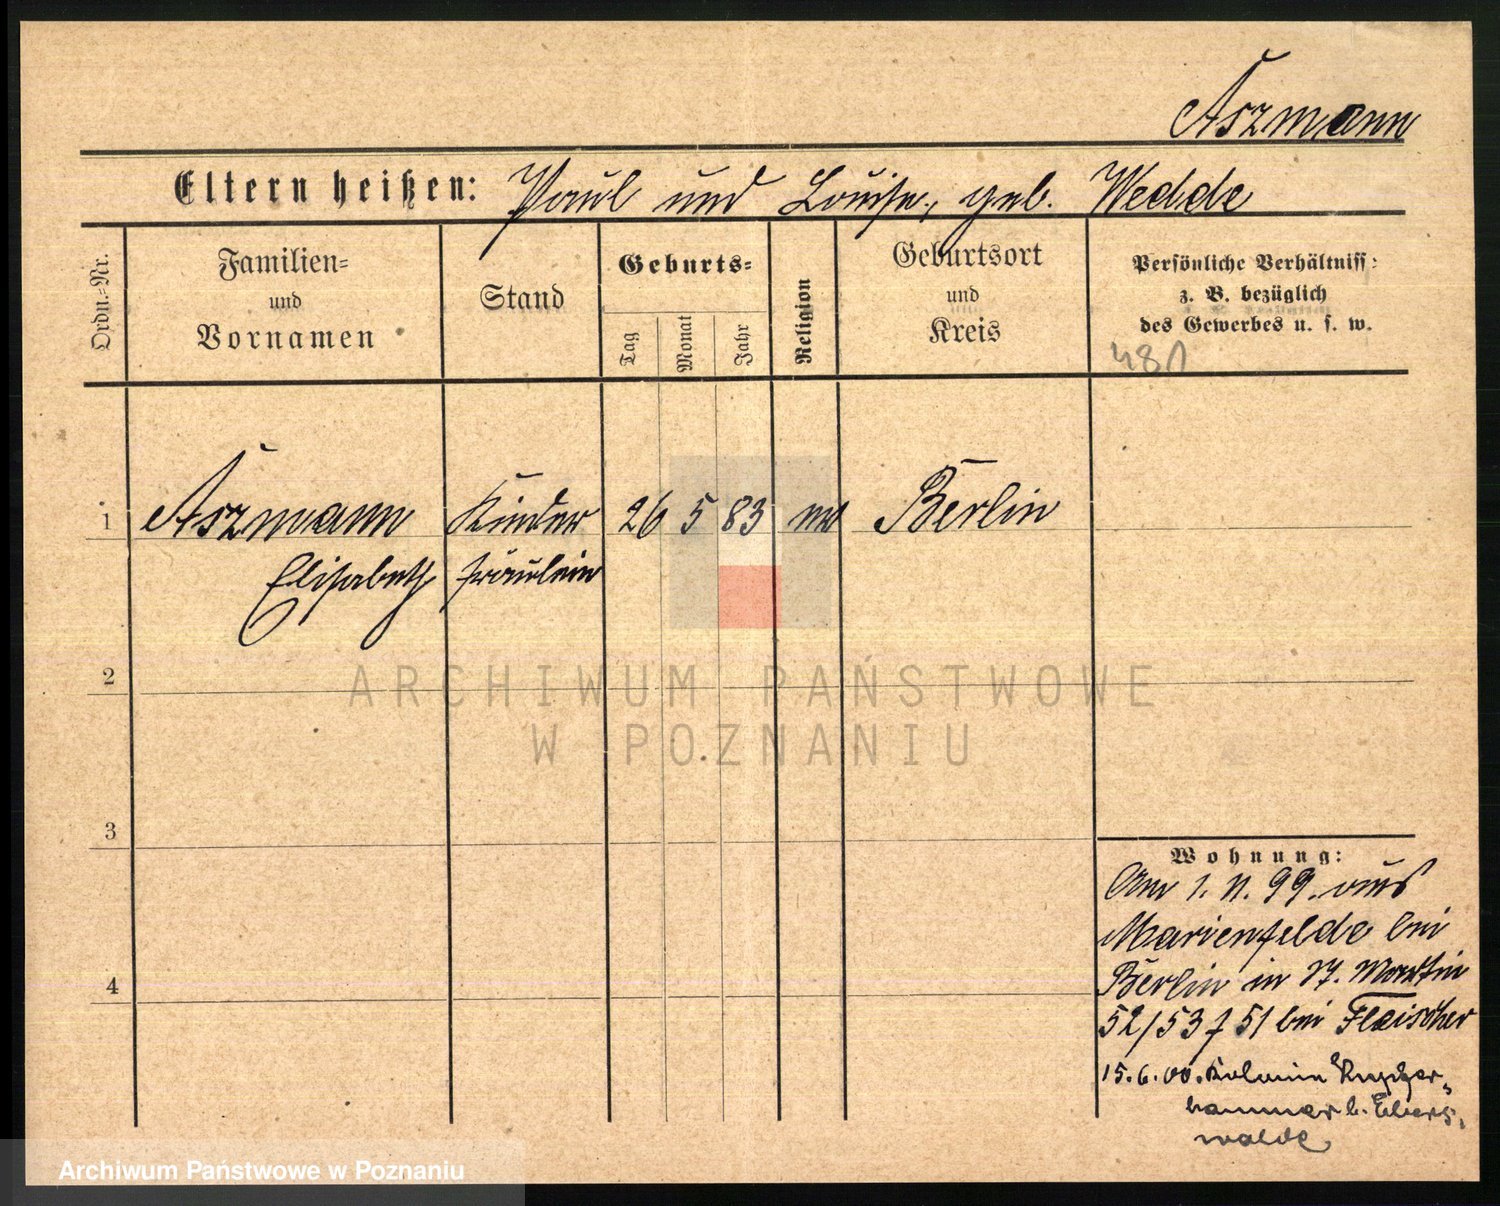 Aszmann
Eltern heißen: Paul und Louise, geb. Wedde
Ordn.-Nr.
Familien-
und
Vornamen
Stand
Geburts-
Tag
Monat
Jahr
Religion
Geburtsort
und
Kreis
Persönliche Verhältniss:
z. B. bezüglich
des Gewerbes u. s. w.
481
1 Aszmann Kinder 26 5 83 ev Berlin
Elisabeth fräulein
2
3
4
Wohnung:
Am 1. 11. 99. aus
Marienfelde bei
Berlin in St. Martin
52/53 f 51 bei Fleischer
15.6.00. Kolonie
hammer b. Ebers-
walde
ARCHIWUM PAŃSTWOWE
W POZNANIU
Archiwum Państwowe w Poznaniu